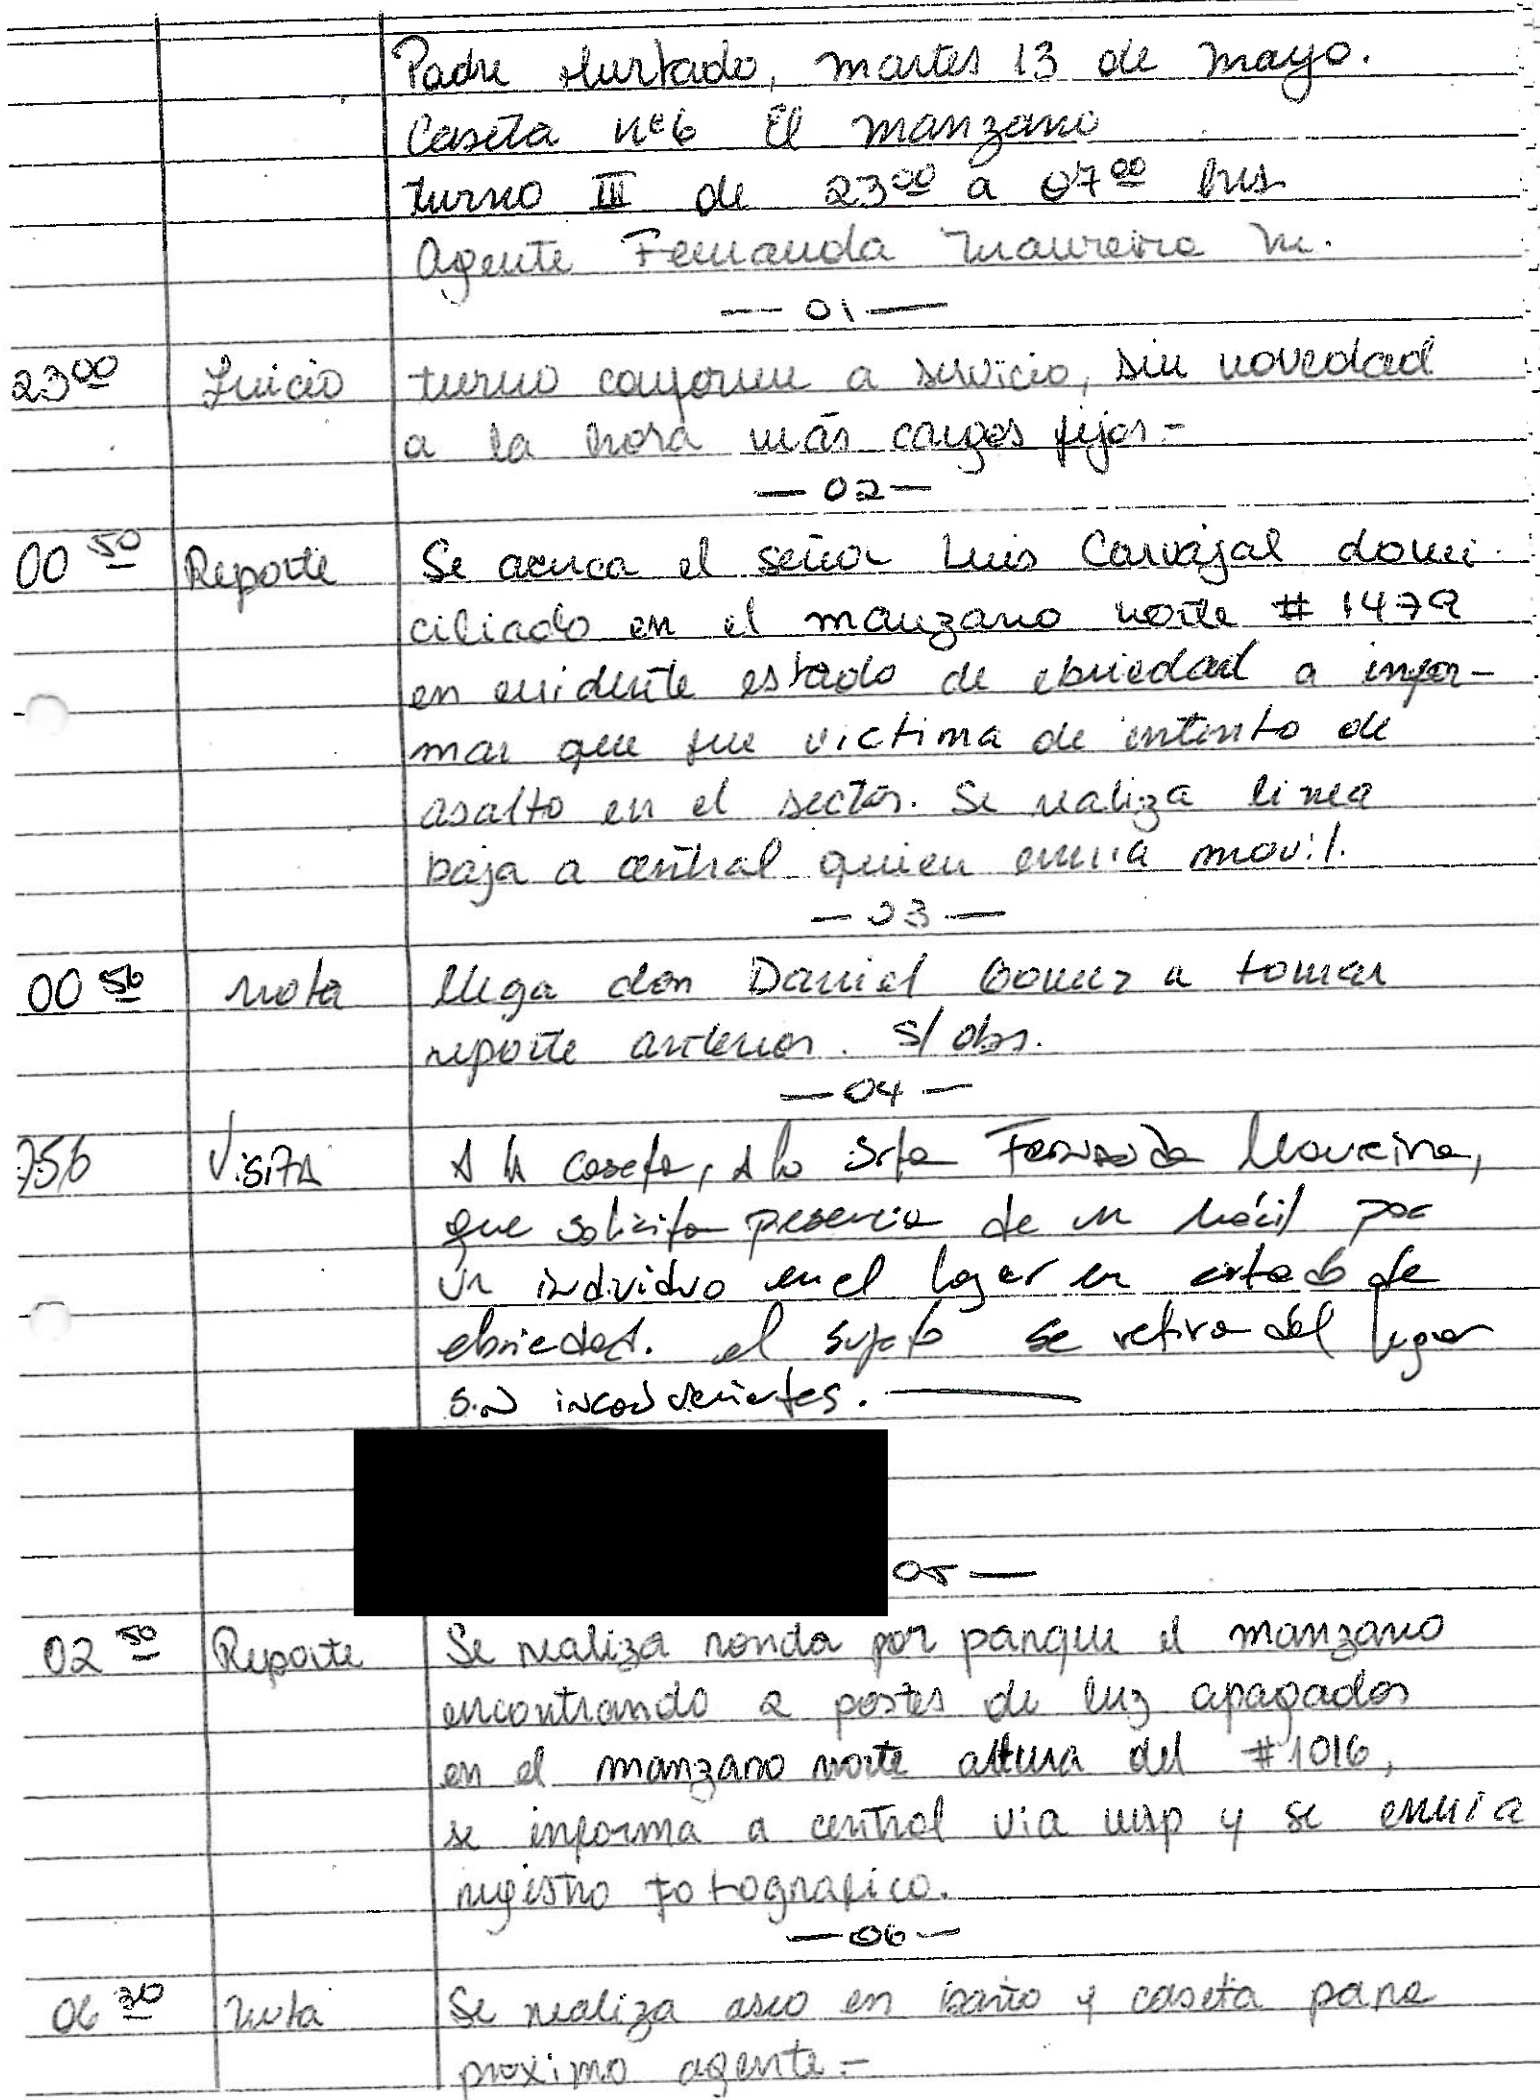 Padre Hurtado, martes 13 de mayo.
Caseta n°6 El manzano
turno III de 23:00 a 07:00 hrs
Agente Fernanda Maureira M.
— 01 —
23:00 Inicio turno conforme a servicio, sin novedad
a la hora más cargos fijos=
— 02 —
00:50 Reporte Se acerca el señor Luis Carvajal domi
ciliado en el manzano norte # 1479
en evidente estado de ebriedad a infor-
mar que fue victima de intento de
asalto en el sector. Se realiza linea
baja a central quien envia movil.
— 03 —
00:56 nota llega don Daniel Gomez a tomar
reporte anterior. S/ obs.
— 04 —
:56 Visita A la caseta, A la Srta Fernanda Maureira,
que solicita presencia de un móvil por
un individuo en el lugar en estado de
ebriedad. el sujeto se retira del lugar
sin inconvenientes.
05 —
02:50 Reporte Se realiza ronda por parque el manzano
encontrando 2 postes de luz apagados
en el manzano norte altura del #1016,
se informa a central via wsp y se envia
registro fotografico.
— 06 —
06:30 nota Se realiza aseo en baño y caseta para
proximo agente=